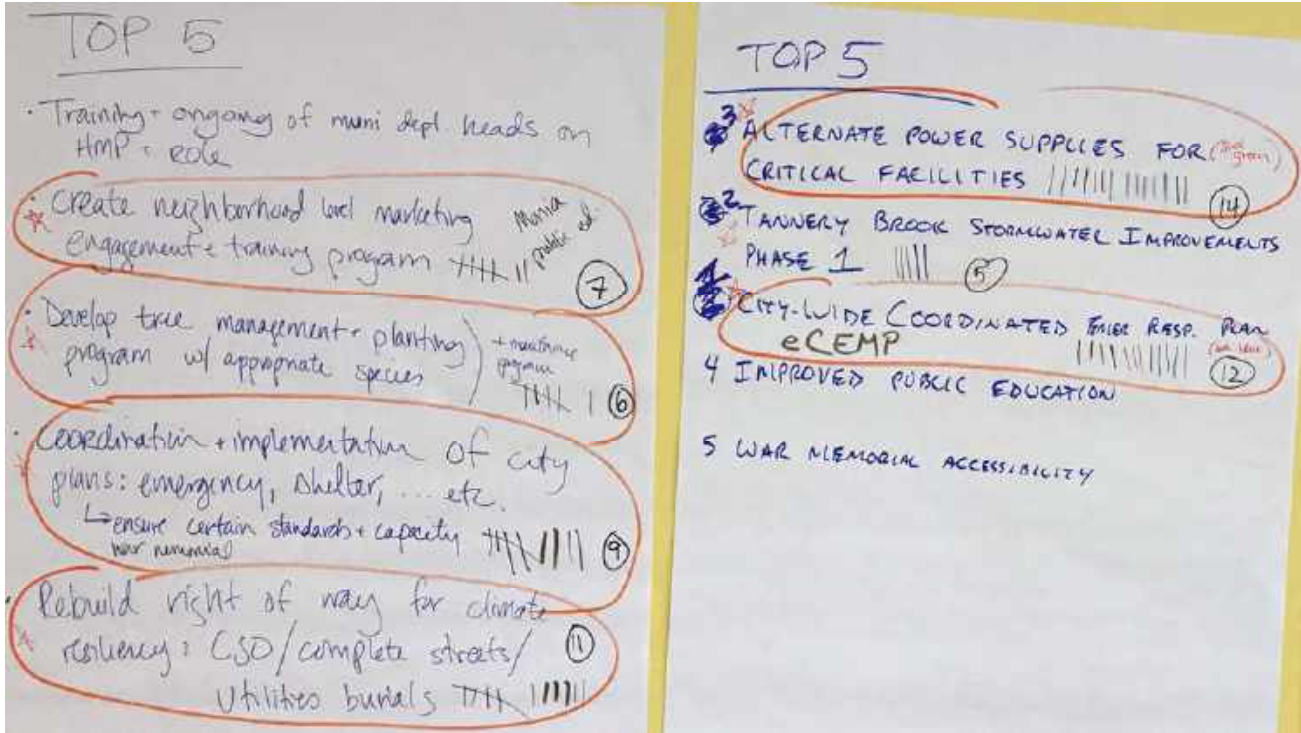 TOP 5
· Training + ongoing of muni dept. heads on
HMP + ROLE
· Create neighborhood level marketing
engagement + training program
Mania
public ed.
7
· Develop tree management + planting
program w/ appropriate species
+ maintenance
program
6
· Coordination + implementation of city
plans: emergency, shelter, ... etc.
↳ ensure certain standards + capacity
war memorial
9
· Rebuild right of way for climate
resiliency: CSO/complete streets/
utilities burials
11
TOP 5
3 ALTERNATE POWER SUPPLIES FOR
CRITICAL FACILITIES
14
2 TANNERY BROOK STORMWATER IMPROVEMENTS
PHASE 1
5
1 CITY-WIDE COORDINATED EMER RESP. PLAN
eCEMP
12
4 IMPROVED PUBLIC EDUCATION
5 WAR MEMORIAL ACCESSIBILITY